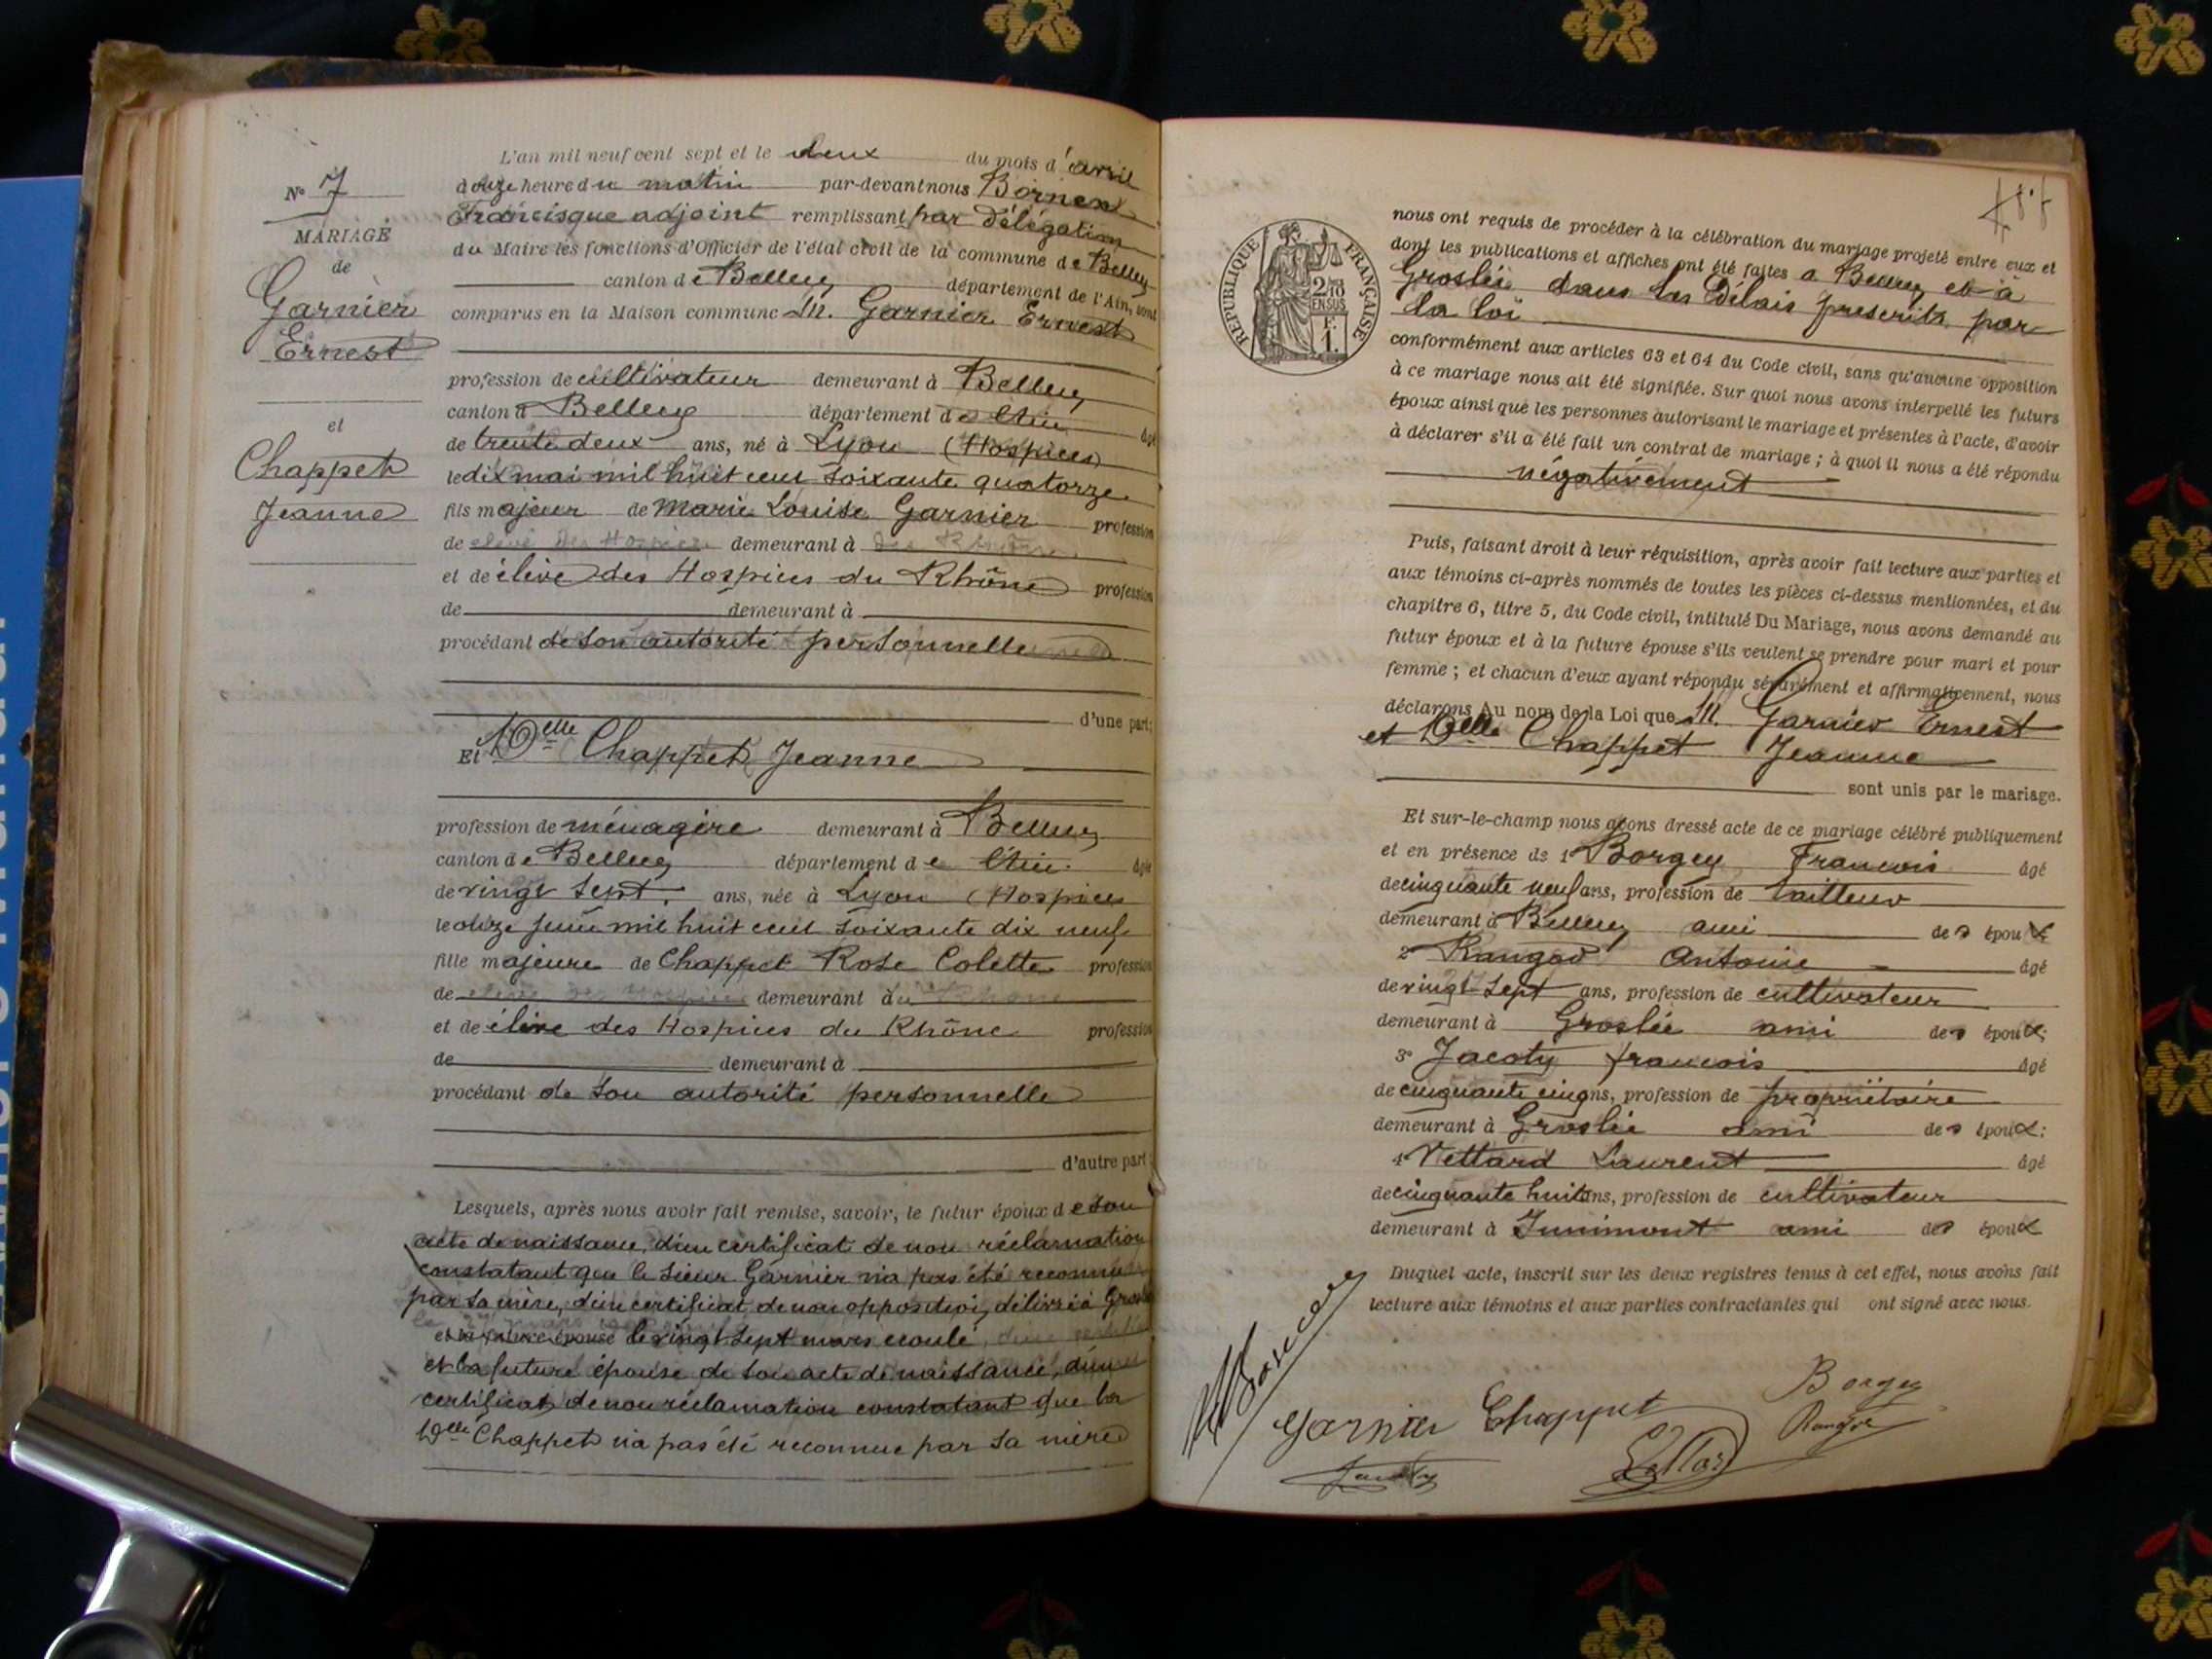 N° 7
MARIAGE
de
Garnier
Ernest
et
Chappet
Jeanne
L'an mil neuf cent sept et le deux du mois d'avril
douze heure du matin par-devant nous Bornex
Francisque adjoint remplissant par délégation
du Maire les fonctions d'Officier de l'état civil de la commune de Belley
canton de Belley département de l'Ain, sont
comparus en la Maison commune M. Garnier Ernest
profession de cultivateur demeurant à Belley
canton d Belley département de l'Ain âgé
de trente deux ans, né à Lyon (Hospices)
le dix mai mil huit cent soixante quatorze
fils majeur de Marie Louise Garnier profession
de demeurant à
et de élève des Hospices du Rhône profession
de demeurant à
procédant de son autorité personnelle
d'une part;
Et Delle Chappet Jeanne
profession de ménagère demeurant à Belley
canton de Belley département de l'Ain âgée
de vingt sept ans, née à Lyon (Hospices
le onze juin mil huit cent soixante dix neuf
fille majeure de Chappet Rose Colette profession
de demeurant à
et de élève des Hospices du Rhône profession
de demeurant à
procédant de son autorité personnelle
d'autre part;
Lesquels, après nous avoir fait remise, savoir, le futur époux de son
acte de naissance, d'un certificat de non réclamation
constatant que le sieur Garnier n'a pas été reconnu
par sa mère, d'un certificat de non opposition, délivré à Groslée
le vingt sept mars écoulé
et la future épouse de son acte de naissance, d'un
certificat de non réclamation constatant que la
Delle Chappet n'a pas été reconnue par sa mère
RÉPUBLIQUE FRANÇAISE
2/10 EN SUS
1 F.
nous ont requis de procéder à la célébration du mariage projeté entre eux et
dont les publications et affiches ont été faites a Belley et à
Groslée dans les délais prescrits par
la loi
conformément aux articles 63 et 64 du Code civil, sans qu'aucune opposition
à ce mariage nous ait été signifiée. Sur quoi nous avons interpellé les futurs
époux ainsi que les personnes autorisant le mariage et présentes à l'acte, d'avoir
à déclarer s'il a été fait un contrat de mariage; à quoi il nous a été répondu
négativement
Puis, faisant droit à leur réquisition, après avoir fait lecture aux parties et
aux témoins ci-après nommés de toutes les pièces ci-dessus mentionnées, et du
chapitre 6, titre 5, du Code civil, intitulé Du Mariage, nous avons demandé au
futur époux et à la future épouse s'ils veulent se prendre pour mari et pour
femme; et chacun d'eux ayant répondu séparément et affirmativement, nous
déclarons Au nom de la Loi que M. Garnier Ernest
et Delle Chappet Jeanne
sont unis par le mariage.
Et sur-le-champ nous avons dressé acte de ce mariage célébré publiquement
et en présence de 1° Borgey Francois âgé
de cinquante neuf ans, profession de tailleur
demeurant à Belley ami des époux
2° Rangod Antoine âgé
de vingt sept ans, profession de cultivateur
demeurant à Groslée ami des époux;
3° Jacoty francois âgé
de cinquante cinq ans, profession de propriétaire
demeurant à Groslée ami des époux;
4° Vettard Laurent âgé
de cinquante huit ans, profession de cultivateur
demeurant à Innimont ami des époux
Duquel acte, inscrit sur les deux registres tenus à cet effet, nous avons fait
lecture aux témoins et aux parties contractantes qui ont signé avec nous.
Garnier Chappet Borgey
Rangod